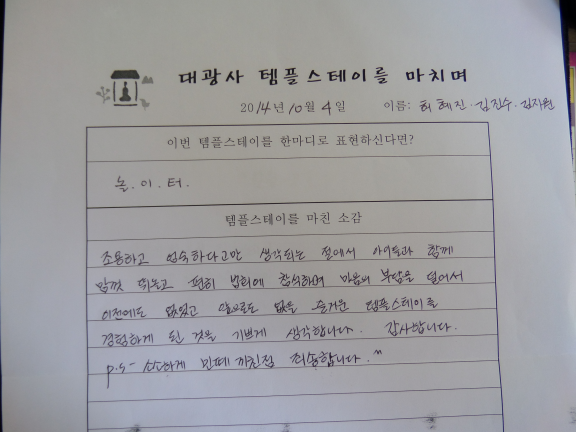 대광사 템플스테이를 마치며
2014년 10월 4일 이름: 허혜진·김진수·김자원
이번 템플스테이를 한마디로 표현하신다면?
놀.이.터.
템플스테이를 마친 소감
조용하고 엄숙하다고만 생각되는 절에서 아이들과 함께
맘껏 뛰놀고 편히 법회에 참석하며 마음의 부담을 덜어서
이전에도 없었고 앞으로도 없을 즐거운 템플스테이를
경험하게 된 것을 기쁘게 생각합니다. 감사합니다.
p.s- 소소하게 민폐끼친점 죄송합니다.^^